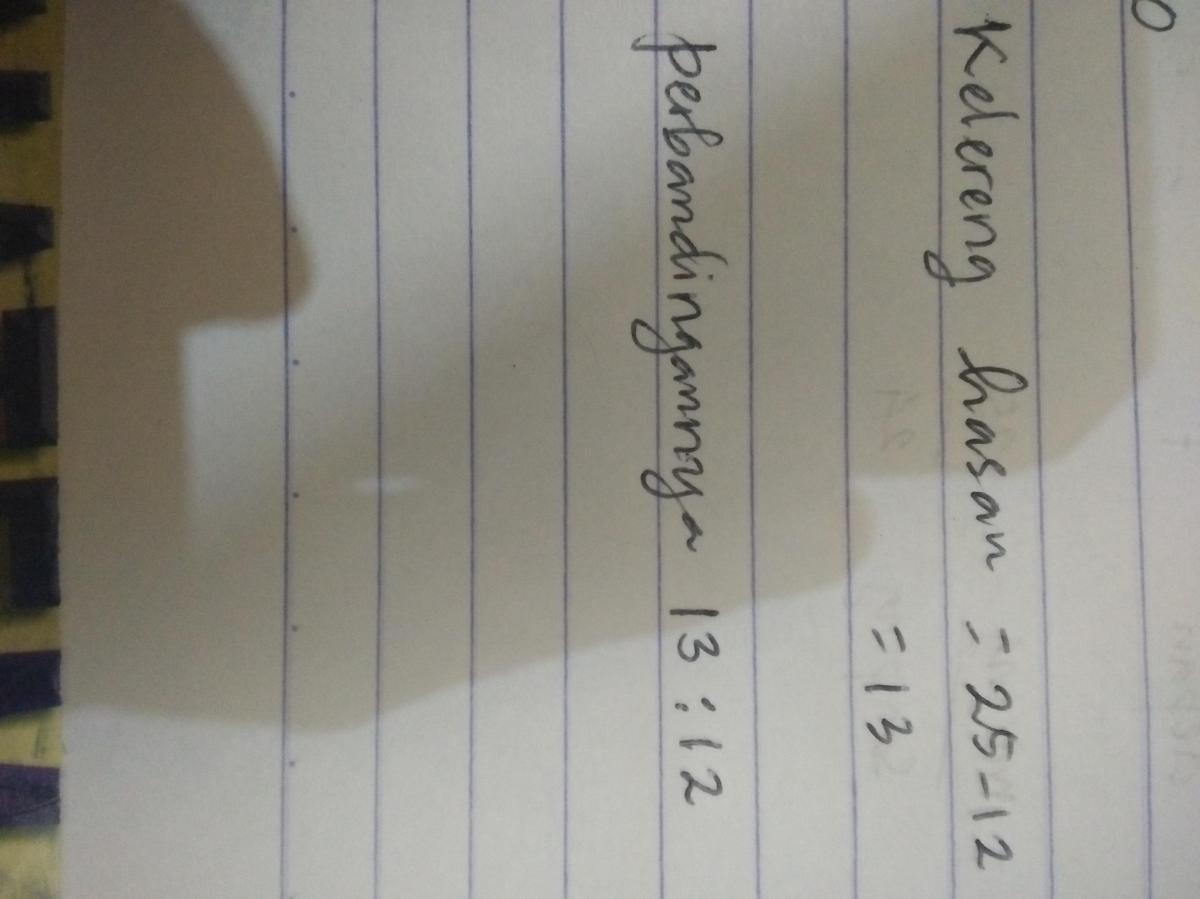 Kelereng hasan = 25-12
= 13
perbandingannya 13 : 12